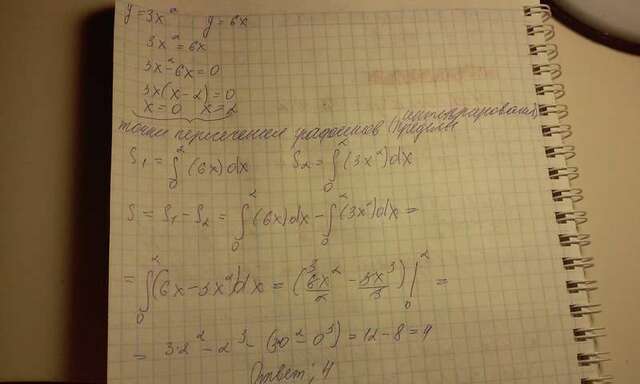 y=3x² y=6x
3x²=6x
3x²-6x=0
3x(x-2)=0
x=0 x=2
точки пересечения графиков (пределы интегрирования)
S₁ = ∫₀² (6x)dx S₂ = ∫₀² (3x²)dx
S = S₁ - S₂ = ∫₀² (6x)dx - ∫₀² (3x²)dx =
= ∫₀² (6x-3x²)dx = (6x²/2 - 3x³/3) |₀² =
= 3·2² - 2³ - (3·0² - 0³) = 12 - 8 = 4
Ответ: 4